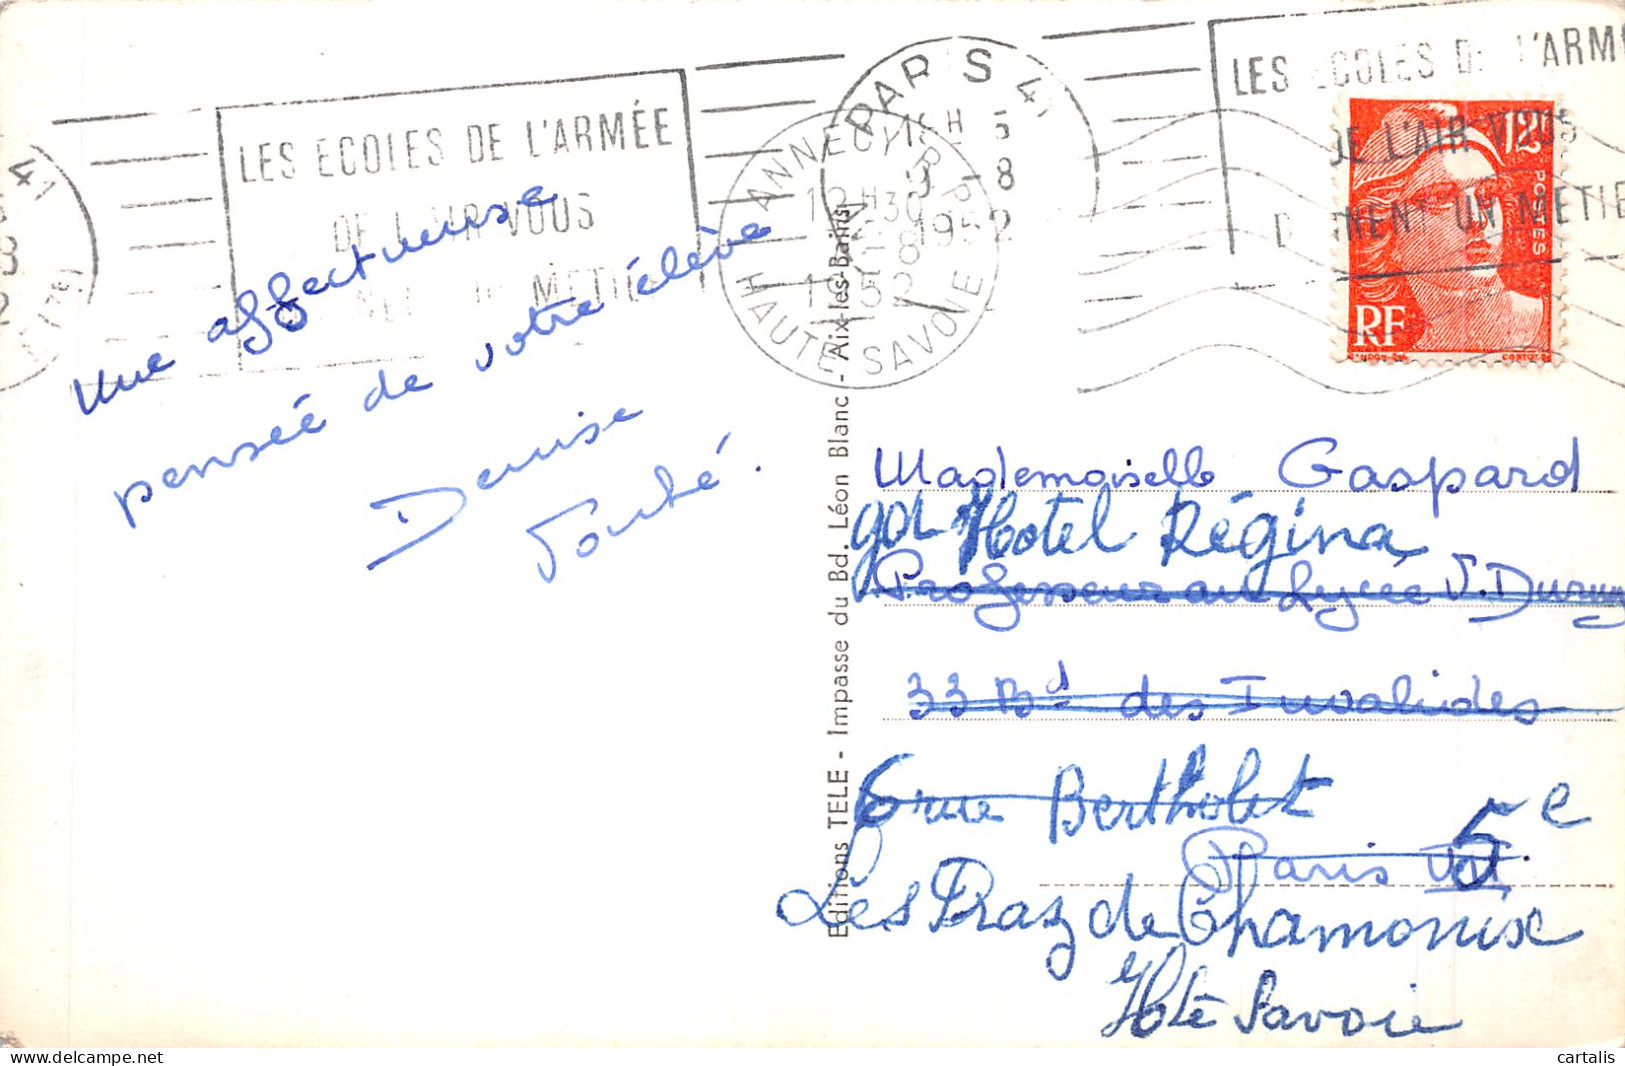 LES ECOLES DE L'ARMÉE
DE L'AIR VOUS
METIE
41
ANNECY
12H30
-8
1952
HAUTE-SAVOIE
PARIS 41
5
-8
1952
LES ECOLES DE L'ARM
DE L'AIR VOUS
DONNENT UN METIE
12F
POSTES
RF
une affectueuse
pensée de votre élève
Denise
Editions TELE - Impasse du Bd. Léon Blanc - Aix-les-Bains
Mademoiselle Gaspard
Hotel Régina
Professeur au Lycée V. Duruy
33 Bd des Invalides
6 rue Berthollet
5e
Paris VII
Les Praz de Chamonix
Hte Savoie
cartalis